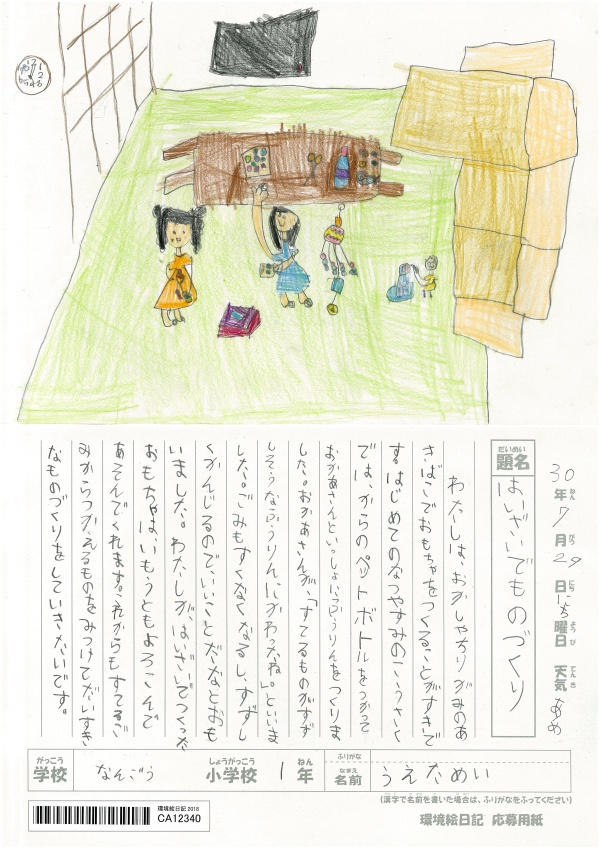 30年ねん7月がつ29日にちにち曜日ようび天気てんきあめ
題名だいめい
はいざいでものづくり
わたしは、おかしやちりがみのあ
きばこでおもちゃをつくることがすきで
す。はじめてのなつやすみのこうさく
では、からのペットボトルをつかって
おかあさんといっしょにふうりんをつくりま
した。おかあさんが、「すてるものがすず
しそうなふうりんにかわったね。」といいま
した。ごみもすくなくなるし、すずし
くかんじるので、いいことだなとおも
いました。わたしが、はいざいでつくった
おもちゃは、いもうともよろこんで
あそんでくれます。これからもすてるご
みからつかえるものをみつけてだいすき
なものづくりをしていきたいです。
がっこう しょうがっこう ねん ふりがな
学校 なんごう 小学校 1年 なまえ 名前 うえだめい
(漢字で名前を書いた場合は、ふりがなをふってください)
環境絵日記 2018
CA12340
環境絵日記 応募用紙